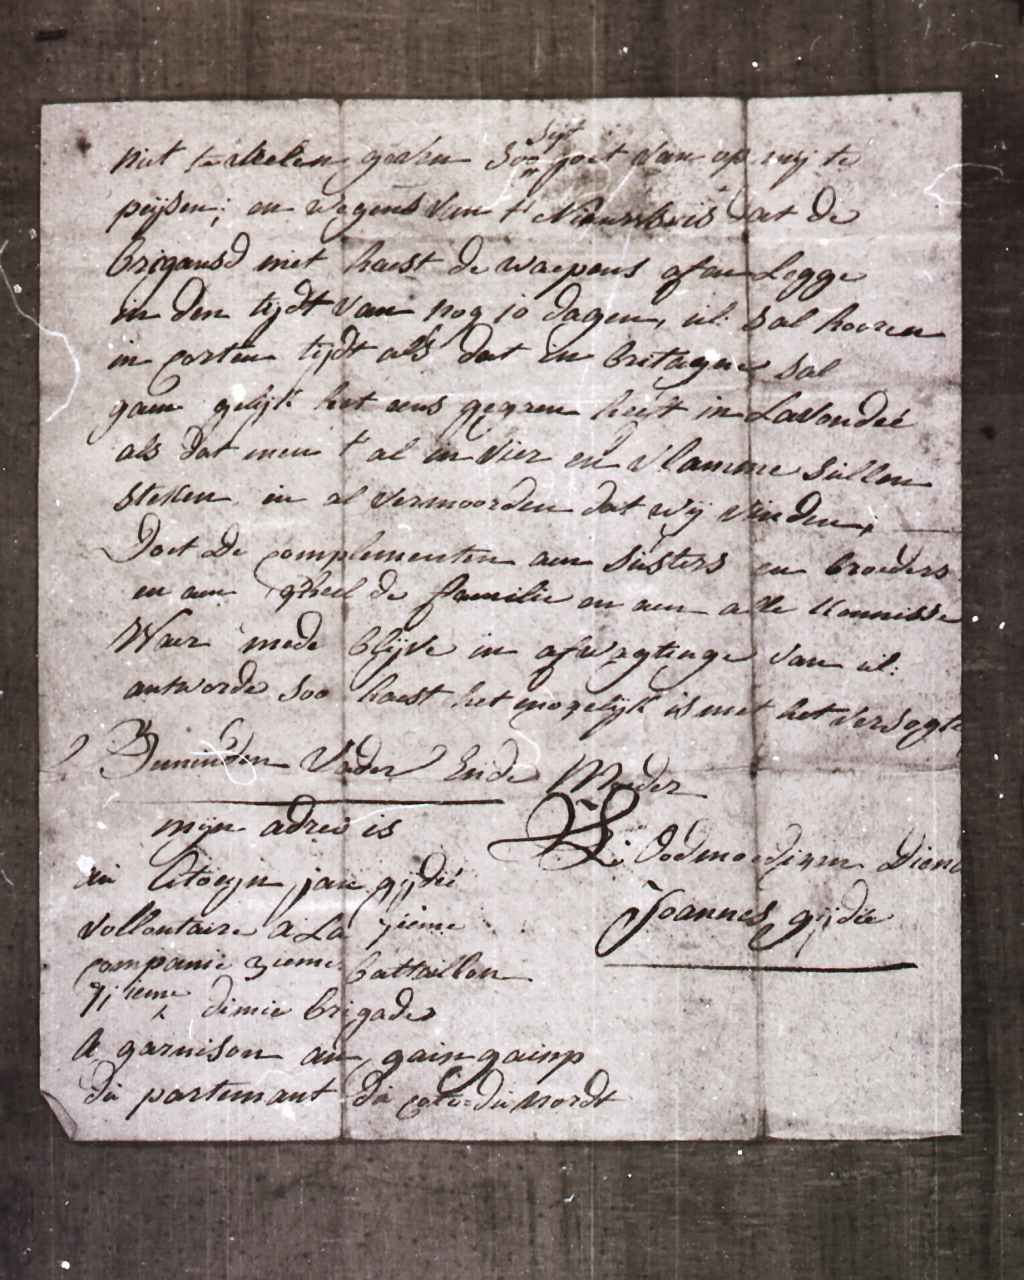 niet te veelen geven soo sijt goet van op mij te
peijsen; en wegens van t Nieuws is dat de
brigands met haest de waepens afan Legge
in den tijdt van nog 10 dagen, ul: sal hooren
in corten tijdt als dat in britagne sal
gaen gelijk het ons gegaen heeft in Lavondeé
als dat men t al in vier en vlamme sullen
steken in al vermoorden dat wij vinden,
Doet de complementen aen susters en broeders
en aen gheel de familie en aen alle kennisse
Waer mede blijve in afwagtinge van ul:
antworde soo haest het mogelijk is met het versogte
Beminden Vader Ende Moeder
mijn adres is
UL: Oodmoedigen Diena
au Citoeyn jan gijdié
Joannes gijdie
vollontaire a La 7ieme
companie 3ieme battaillon
dimie brigade
A garnison au gaingainp
du partemant du coté=du nordt